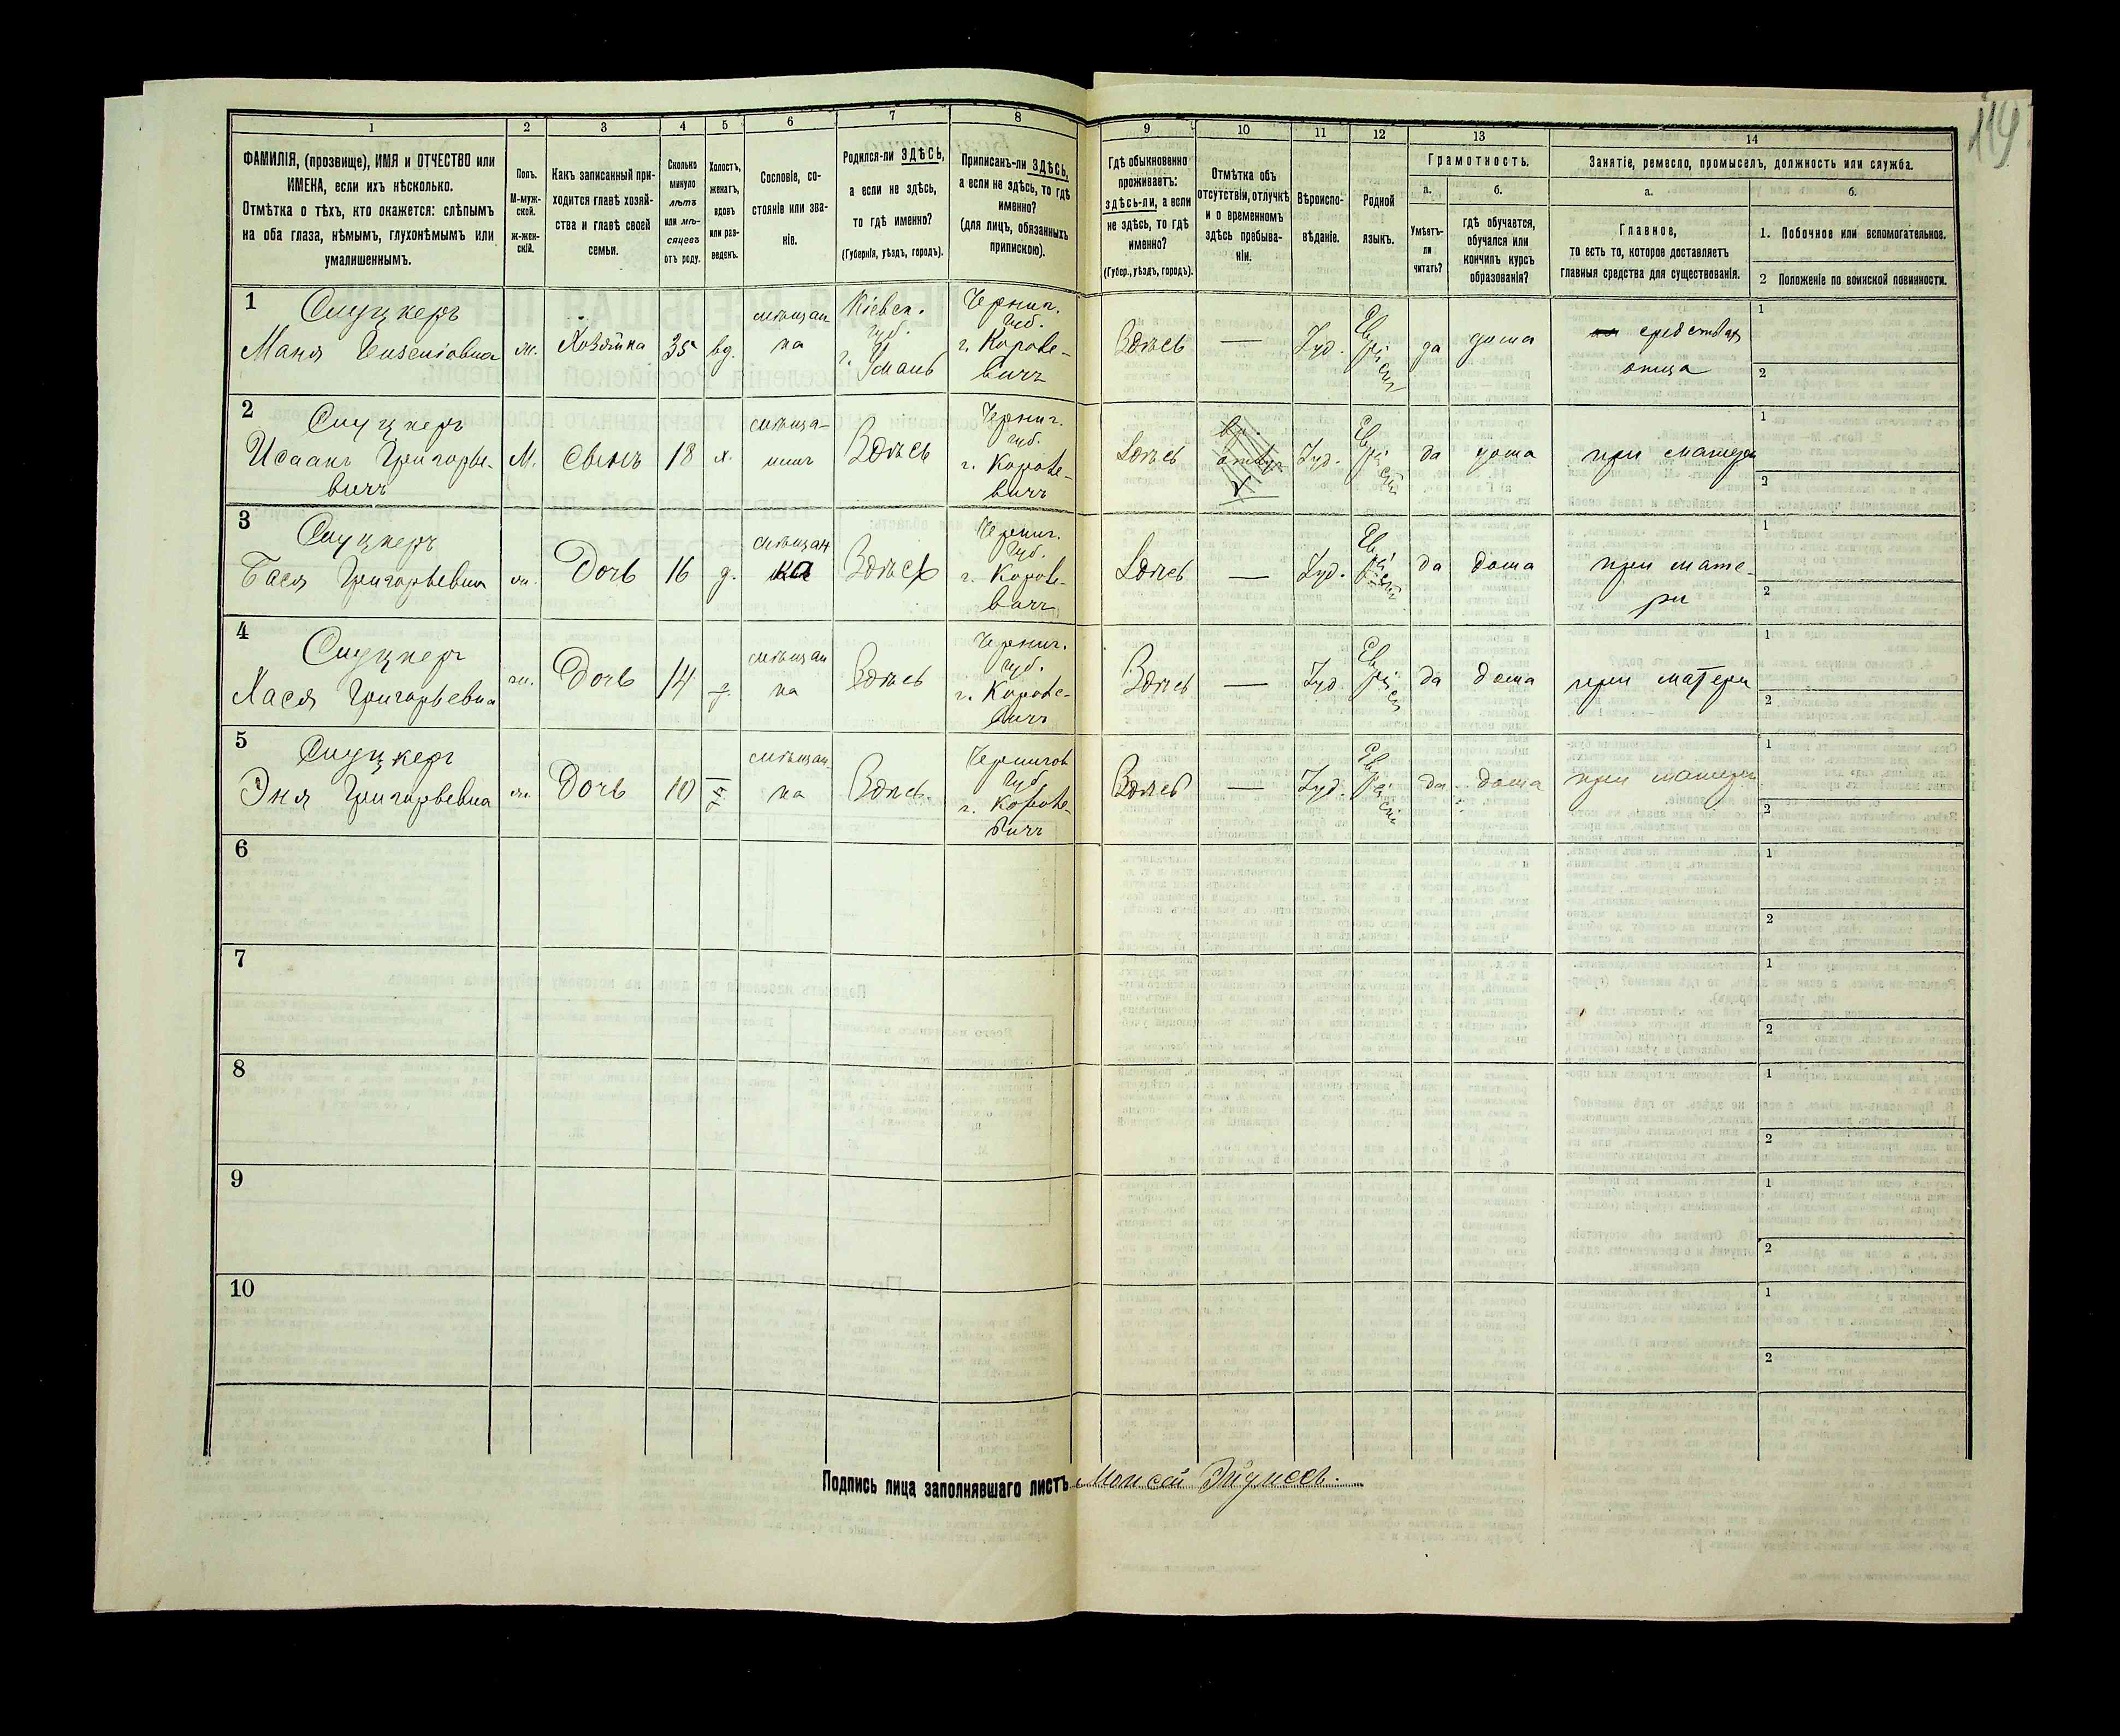 119
1 2 3 4 5 6 7 8 9 10 11 12 13 14
ФАМИЛІЯ, (прозвище), ИМЯ и ОТЧЕСТВО или
ИМЕНА, если ихъ нѣсколько.
Отмѣтка о тѣхъ, кто окажется: слѣпымъ
на оба глаза, нѣмымъ, глухонѣмымъ или
умалишеннымъ.
Полъ.
М-муж-
ской.
ж-жен-
скій.
Какъ записанный при-
ходится главѣ хозяй-
ства и главѣ своей
семьи.
Сколько
минуло
лѣтъ
или мѣ-
сяцевъ
отъ роду.
Холостъ,
женатъ,
вдовъ
или раз-
веденъ.
Сословіе, со-
стояніе или зва-
ніе.
Родился-ли ЗДѢСЬ,
а если не здѣсь,
то гдѣ именно?
(Губернія, уѣздъ, городъ).
Приписанъ-ли ЗДѢСЬ,
а если не здѣсь, то гдѣ
именно?
(для лицъ, обязанныхъ
припискою).
Гдѣ обыкновенно
проживаетъ:
здѣсь-ли, а если
не здѣсь, то гдѣ
именно?
(Губер., уѣздъ, городъ).
Отмѣтка объ
отсутствіи, отлучкѣ
и о временномъ
здѣсь пребыва-
ніи.
Вѣроиспо-
вѣданіе.
Родной
языкъ.
Грамотность.
а.
Умѣетъ-
ли
читать?
б.
гдѣ обучается,
обучался или
кончилъ курсъ
образованія?
Занятіе, ремесло, промыселъ, должность или служба.
а.
Главное,
то есть то, которое доставляетъ
главныя средства для существованія.
б.
1. Побочное или вспомогательное.
2 Положеніе по воинской повинности.
1
Слуцкеръ
Маня
ж.
Хозяйка
35
вд.
мѣщан
ка
Кіевск.
губ.
г. Умань
Черниг.
губ.
г. Коропе-
вичъ
Здѣсь
—
Іуд.
Еврейскій
да
дома
средства
отца
1
2
2
Слуцкеръ
Исаакъ Григорье-
вичъ
М.
Сынъ
18
х.
мѣща-
нинъ
Здѣсь
Черниг.
губ.
г. Коропе-
вичъ
Здѣсь
Іуд.
Еврейскій
да
дома
при матери
1
2
3
Слуцкеръ
Бася Григорьевна
ж.
Дочь
16
д.
мѣщан
ка
Здѣсь
Черниг.
губ.
г. Коропе-
вичъ
Здѣсь
—
Іуд.
Еврейскій
да
дома
при мате-
ри
1
2
4
Слуцкеръ
Хася Григорьевна
ж.
Дочь
14
д.
мѣщан
ка
Здѣсь
Черниг.
губ.
г. Коропе-
вичъ
Здѣсь
—
Іуд
Еврейск
да
дома
при матери
1
2
5
Слуцкеръ
Эня Григорьевна
ж.
Дочь
10
мѣщан
ка
Здѣсь
Чернигов
губ
г. Коропе-
вичъ
Здѣсь
—
Іуд.
Еврейскій
да
дома
при матери
1
2
6
1
2
7
1
2
8
1
2
9
1
2
10
1
2
Подпись лица заполнявшаго листъ Моисей